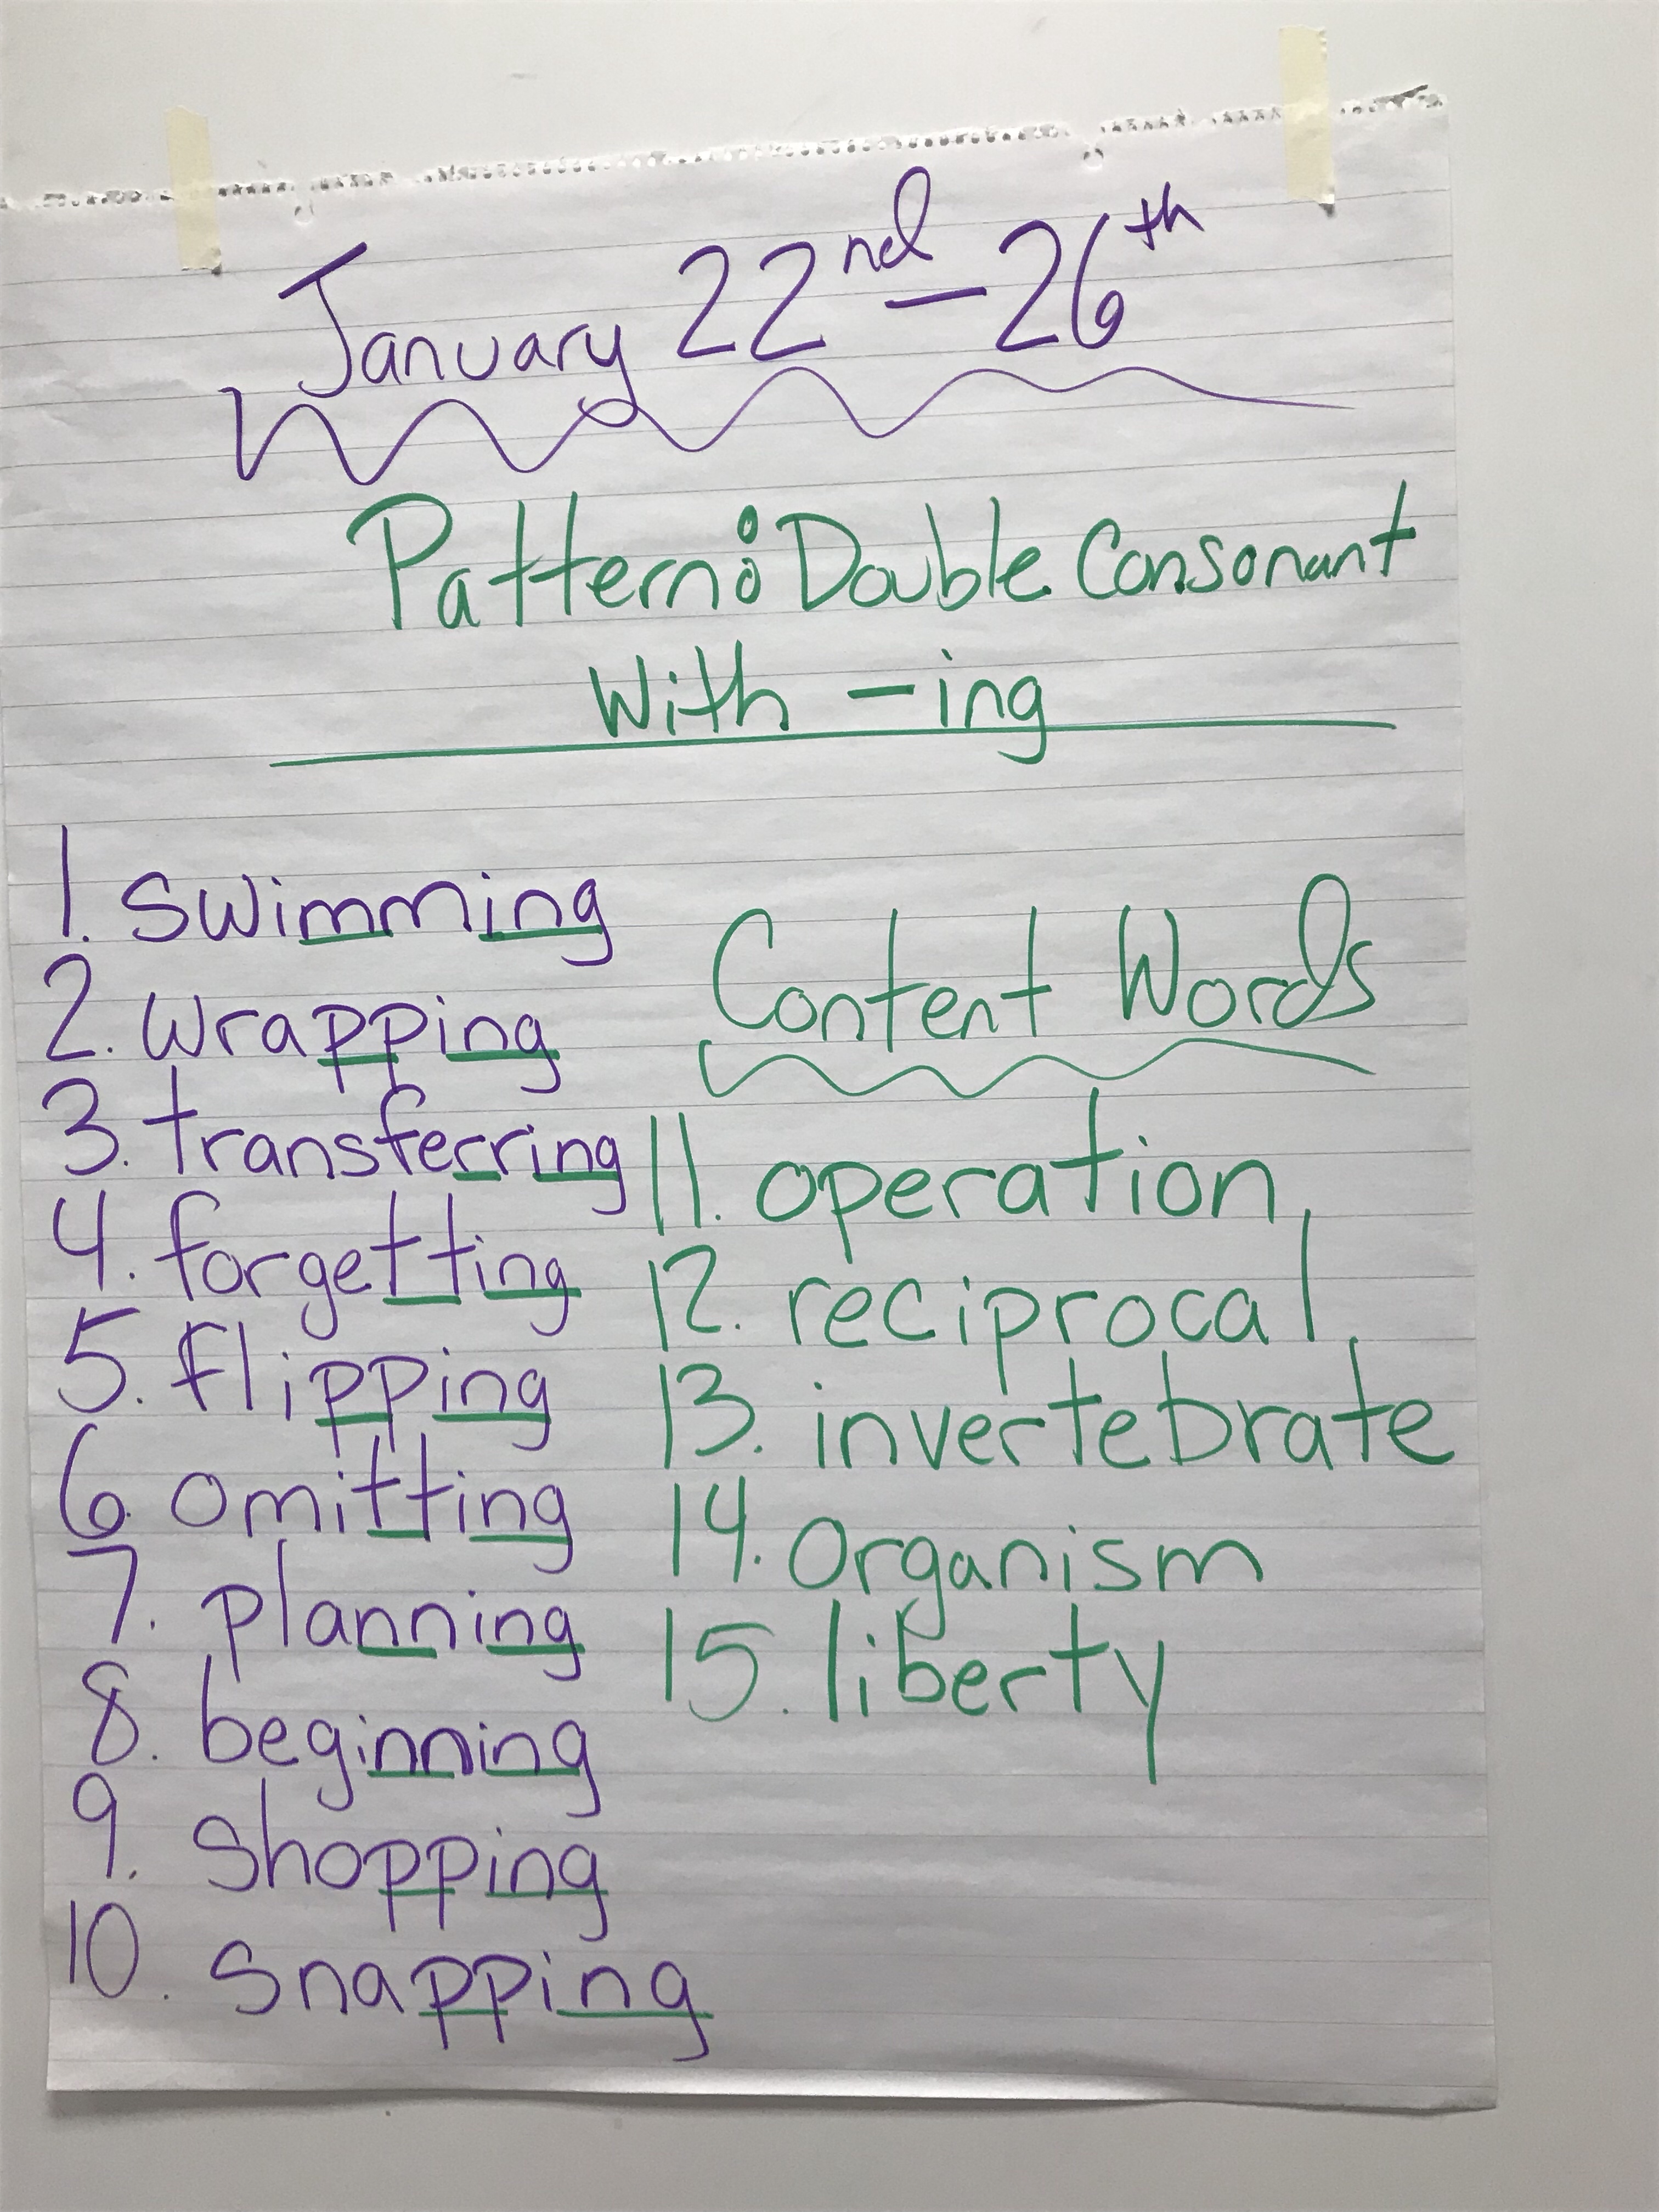 January 22nd - 26th
Pattern: Double Consonant
With -ing
1. swimming
2. wrapping
3. transferring
4. forgetting
5. flipping
6. omitting
7. planning
8. beginning
9. shopping
10. snapping
Content Words
11. operation
12. reciprocal
13. invertebrate
14. Organism
15. liberty